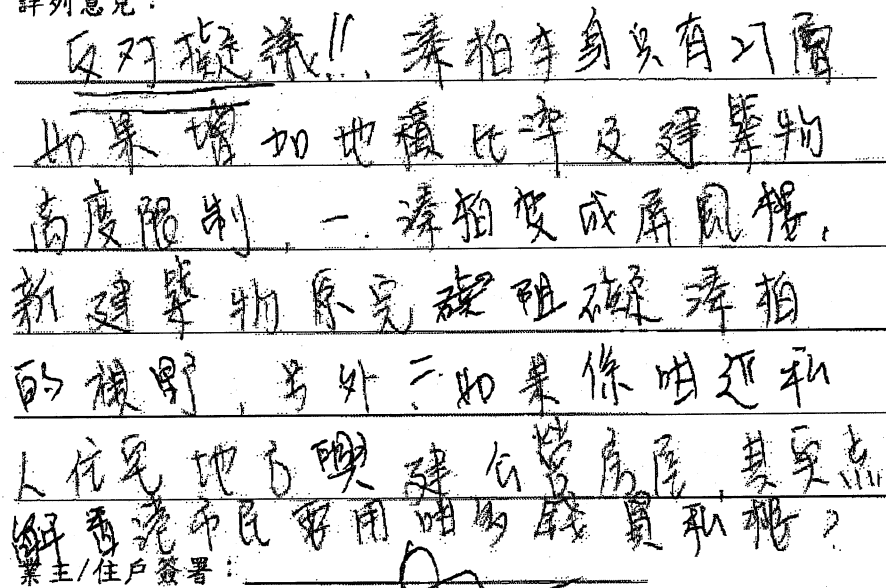 詳列意見：
反对擬議!! 溱柏本身只有27層
如果增加地積比率及建築物
高度限制，一.溱柏变成屏風樓，
新建築物原完 阻礙溱柏
的視野，另外二.如果係咁近私
人住宅地方興建公營房屋，其实点
解香港市民要用咁多錢買私樓？
業主/住戶簽署：